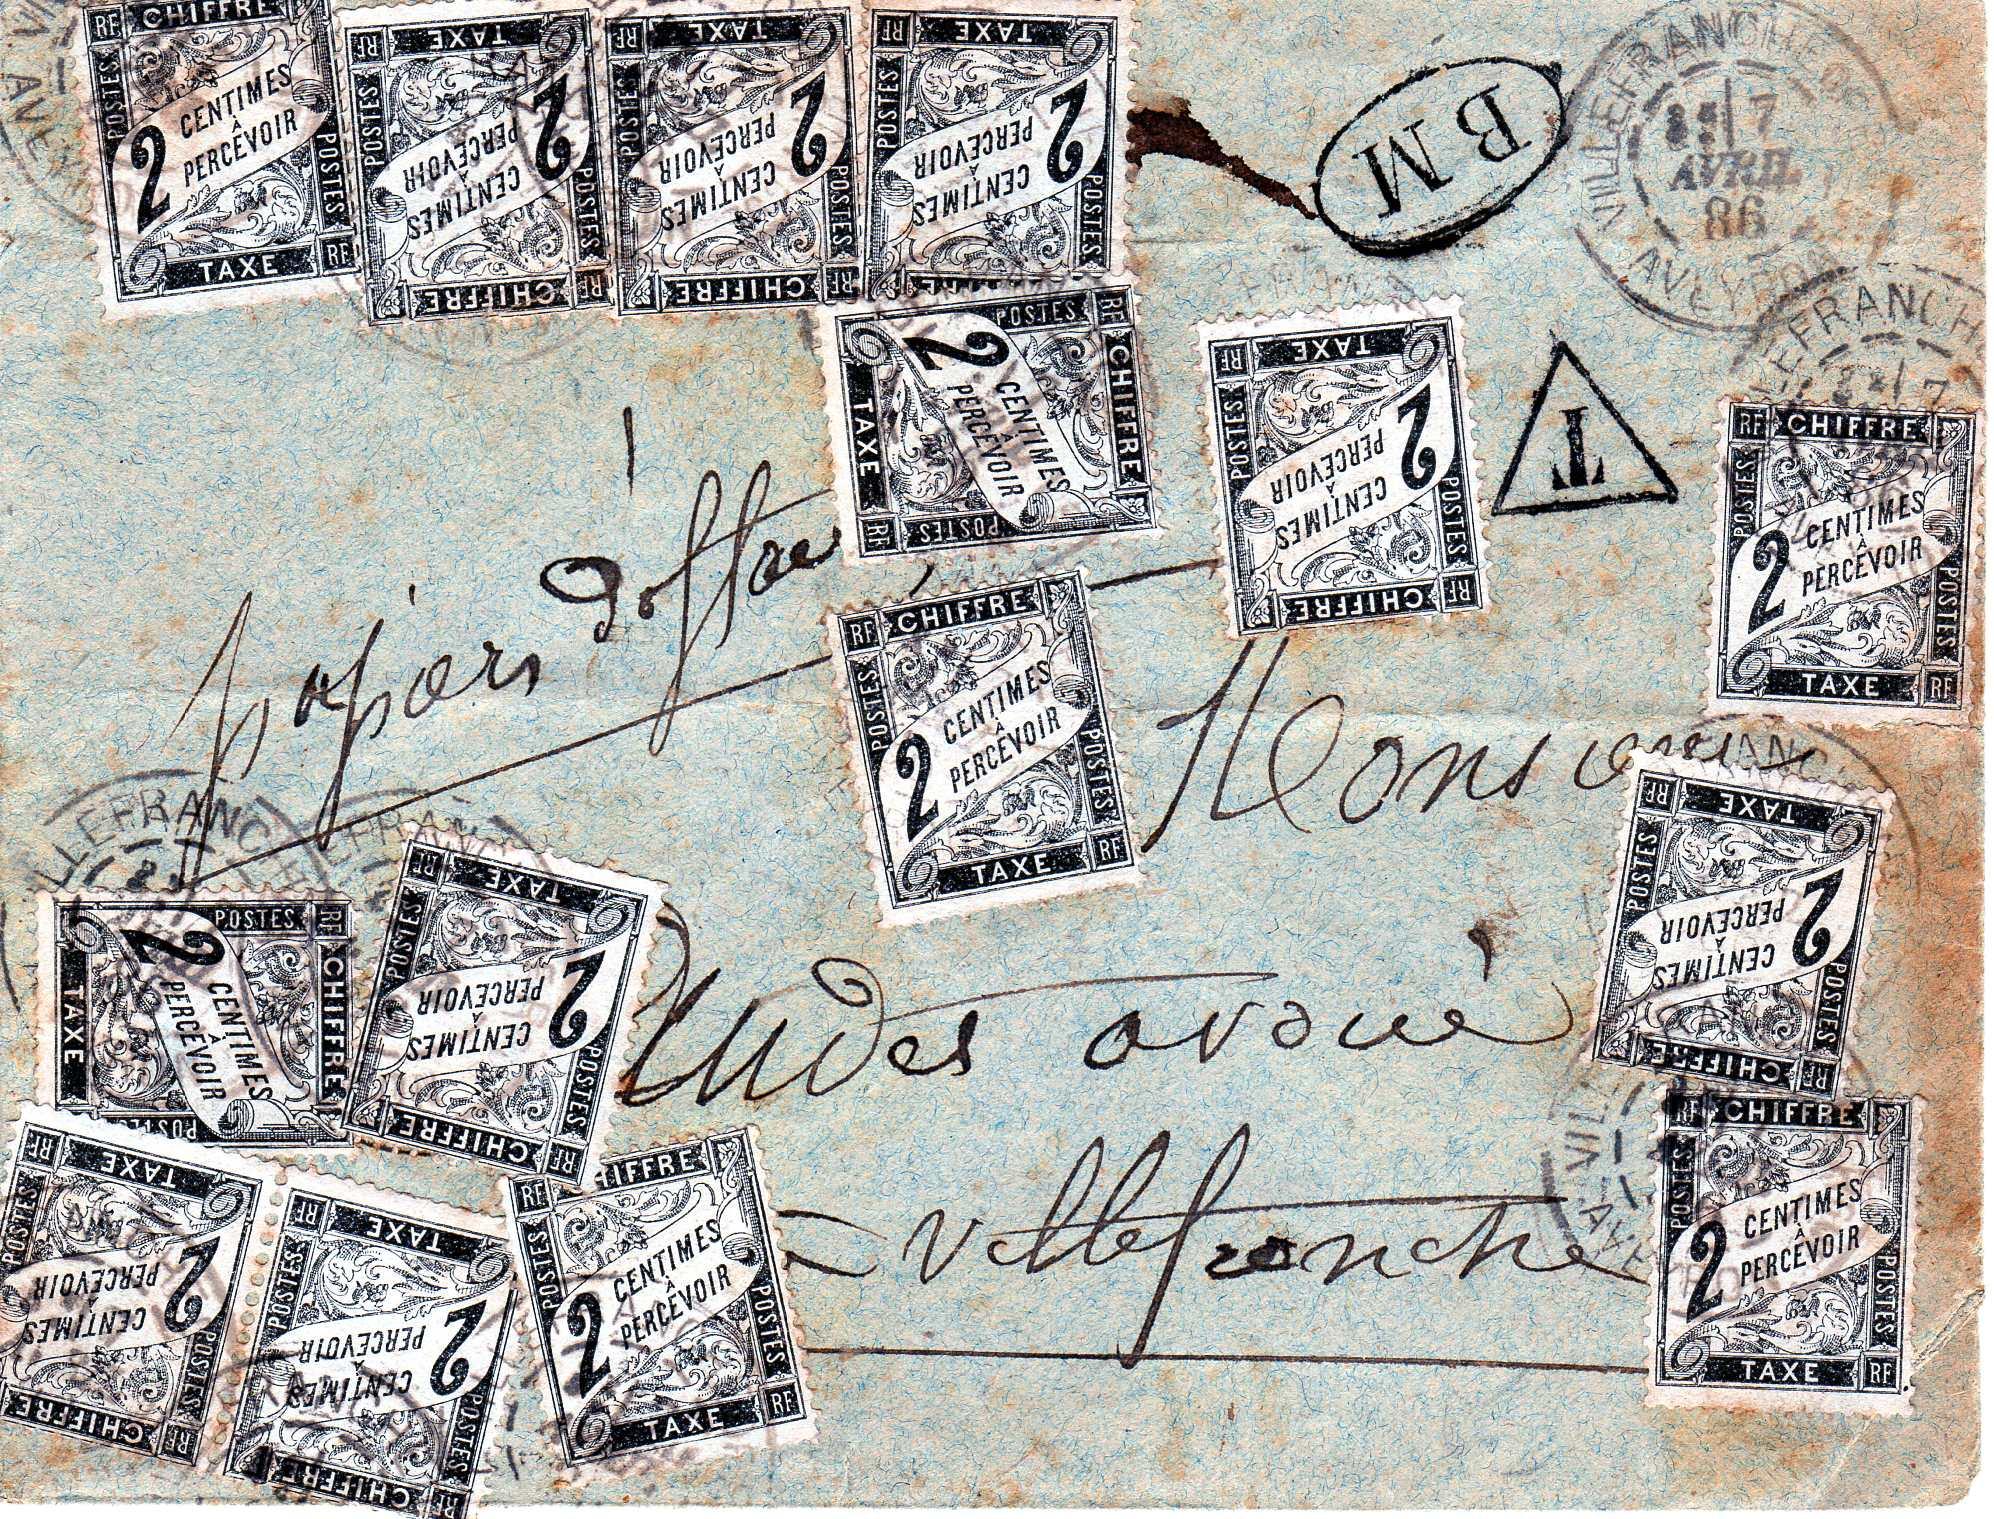 CHIFFRE RF POSTES 2 CENTIMES À PERCEVOIR POSTES TAXE RF
RF TAXE POSTES 2 CENTIMES À PERCEVOIR POSTES CHIFFRE RF
RF TAXE POSTES 2 CENTIMES À PERCEVOIR POSTES CHIFFRE RF
RF TAXE POSTES 2 CENTIMES À PERCEVOIR POSTES
BM
VILLEFRANCHE
7
AVRIL
86
AVEYRON
POSTES RF CHIFFRE 2 CENTIMES À PERCEVOIR TAXE RF POSTES
RF TAXE POSTES 2 CENTIMES À PERCEVOIR POSTES CHIFFRE RF
T
VILLEFRANCHE
7
RF CHIFFRE POSTES 2 CENTIMES À PERCEVOIR POSTES TAXE RF
papiers d'affaires
RF CHIFFRE POSTES 2 CENTIMES À PERCEVOIR POSTES TAXE RF
Monsieur
RF TAXE POSTES 2 CENTIMES À PERCEVOIR POSTES CHIFFRE
VILLEFRANCHE
POSTES RF CHIFFRE 2 CENTIMES À PERCEVOIR TAXE POSTES
RF TAXE POSTES 2 CENTIMES À PERCEVOIR POSTES CHIFFRE RF
avoué
Villefranche
RF CHIFFRE POSTES 2 CENTIMES À PERCEVOIR POSTES TAXE RF
RF TAXE POSTES 2 CENTIMES À PERCEVOIR POSTES CHIFFRE RF
RF TAXE POSTES 2 CENTIMES À PERCEVOIR POSTES CHIFFRE RF
RF CHIFFRE POSTES 2 CENTIMES À PERCEVOIR POSTES TAXE RF